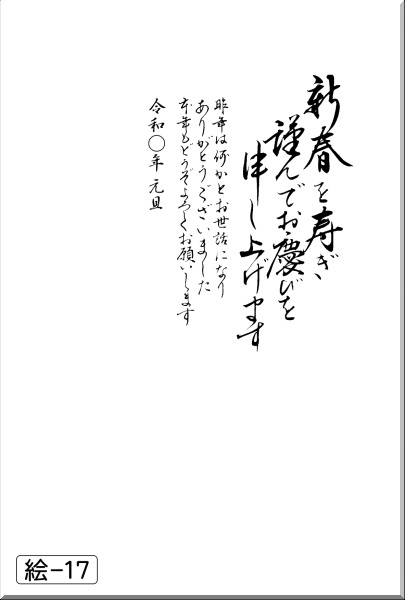 新春を寿ぎ
謹んでお慶びを
申し上げます
昨年は何かとお世話になり
ありがとうございました
本年もどうぞよろしくお願いします
令和〇年 元旦
絵-17